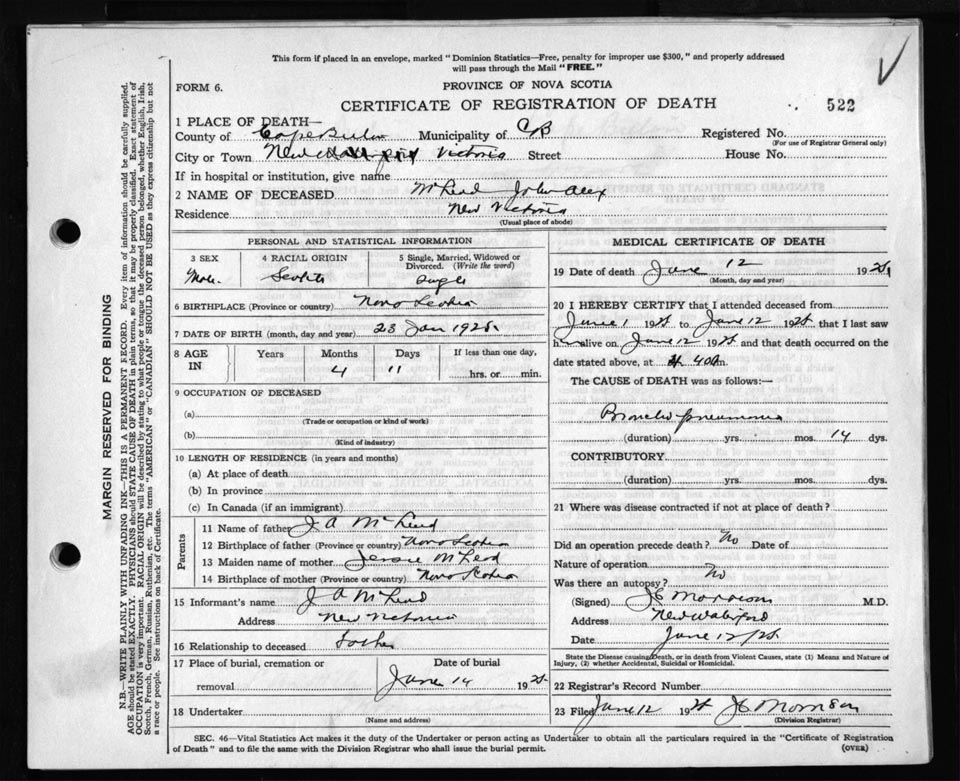 This form if placed in an envelope, marked "Dominion Statistics—Free, penalty for improper use $300," and properly addressed
will pass through the Mail "FREE."
FORM 6.
PROVINCE OF NOVA SCOTIA
CERTIFICATE OF REGISTRATION OF DEATH
522
1 PLACE OF DEATH—
County of Cape Breton Municipality of CB Registered No.
(For use of Registrar General only)
City or Town New Victoria Street House No.
If in hospital or institution, give name
2 NAME OF DECEASED McLeod John Alex
Residence New Victoria
(Usual place of abode)
PERSONAL AND STATISTICAL INFORMATION
3 SEX
Male
4 RACIAL ORIGIN
Scotch
5 Single, Married, Widowed or
Divorced. (Write the word)
Single
6 BIRTHPLACE (Province or country) Nova Scotia
7 DATE OF BIRTH (month, day and year) 23 Jan 1928
8 AGE IN
Years Months Days If less than one day,
4 11 hrs. or min.
9 OCCUPATION OF DECEASED
(a)
(Trade or occupation or kind of work)
(b)
(Kind of industry)
10 LENGTH OF RESIDENCE (in years and months)
(a) At place of death
(b) In province
(c) In Canada (if an immigrant)
Parents
11 Name of father J A McLeod
12 Birthplace of father (Province or country) Nova Scotia
13 Maiden name of mother Jessie McLeod
14 Birthplace of mother (Province or country) Nova Scotia
15 Informant's name J A McLeod
Address New Victoria
16 Relationship to deceased Father
17 Place of burial, cremation or
removal
Date of burial
June 14 1928
18 Undertaker
(Name and address)
MEDICAL CERTIFICATE OF DEATH
19 Date of death June 12 1928
(Month, day and year)
20 I HEREBY CERTIFY that I attended deceased from
June 1 1928 to June 12 1928 that I last saw
h alive on June 12 1928 and that death occurred on the
date stated above, at 400 m.
The CAUSE of DEATH was as follows:—
Broncho pneumonia
(duration) yrs. mos. 14 dys.
CONTRIBUTORY
(duration) yrs. mos. dys.
21 Where was disease contracted if not at place of death?
Did an operation precede death? No Date of
Nature of operation
Was there an autopsy? No
(Signed) J C Morrison M.D.
Address New Waterford
Date June 12/28
State the Disease causing Death, or in death from Violent Causes, state (1) Means and Nature of
Injury, (2) whether Accidental, Suicidal or Homicidal.
22 Registrar's Record Number
23 Filed June 12 1928 J C Morrison
(Division Registrar)
SEC. 46—Vital Statistics Act makes it the duty of the Undertaker or person acting as Undertaker to obtain all the particulars required in the "Certificate of Registration
of Death" and to file the same with the Division Registrar who shall issue the burial permit.
(OVER)
MARGIN RESERVED FOR BINDING
N.B.—WRITE PLAINLY WITH UNFADING INK—THIS IS A PERMANENT RECORD. Every item of information should be carefully supplied.
AGE should be stated EXACTLY. PHYSICIANS should STATE CAUSE OF DEATH in plain terms, so that it may be properly classified. Exact statement of
OCCUPATION is very important. RACIAL ORIGIN will be described by stating to what people or tongue the deceased person belonged, whether English, Irish,
Scotch, French, German, Russian, Ruthenian, etc. The terms "AMERICAN" or "CANADIAN" SHOULD NOT BE USED as they express citizenship but not
a race or people. See instructions on back of Certificate.